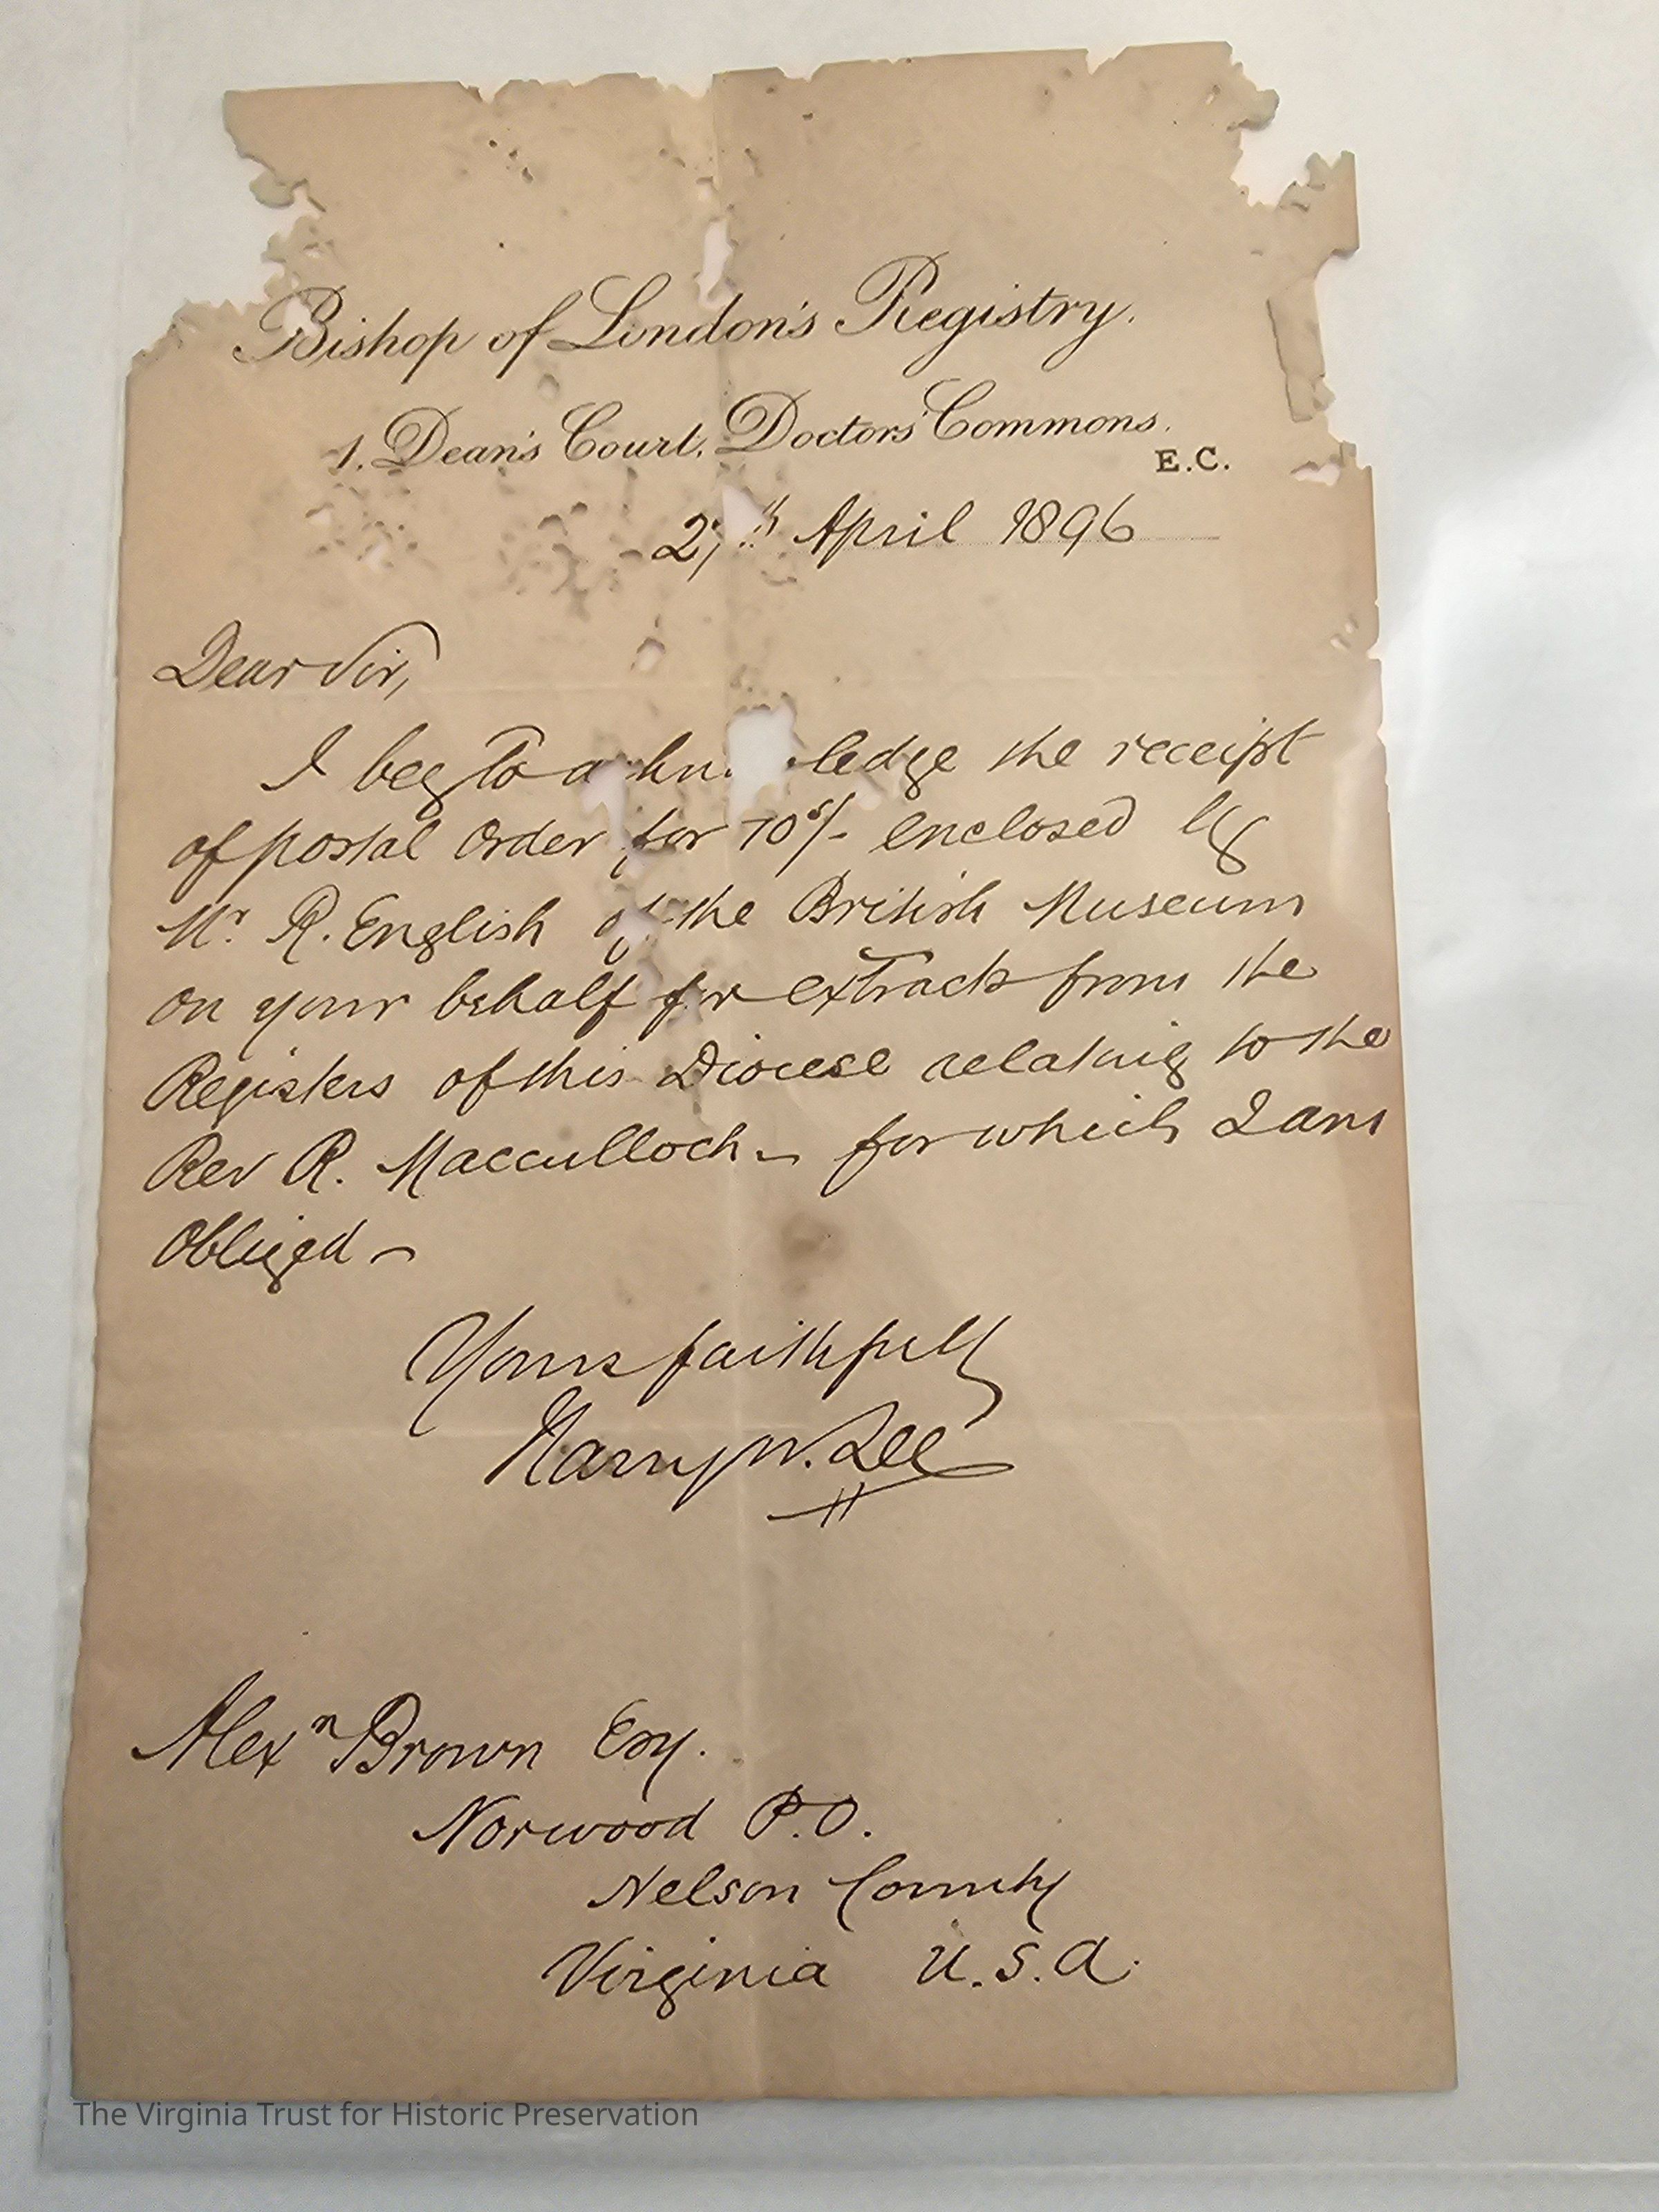 Bishop of London's Registry.
1. Dean's Court, Doctors' Commons.
E.C.
April 1896
Dear Sir,
I beg to the receipt
of postal order for 10s/- enclosed by
Mr. R. English of the British Museum
on your behalf for extracts from the
Registers of this Diocese relating to the
Rev R. Macculloch – for which I am
Obliged –
Yours faithfully
Harry W. Lee
Alexr Brown Esq.
Norwood P.O.
Nelson County
Virginia U.S.A.
The Virginia Trust for Historic Preservation